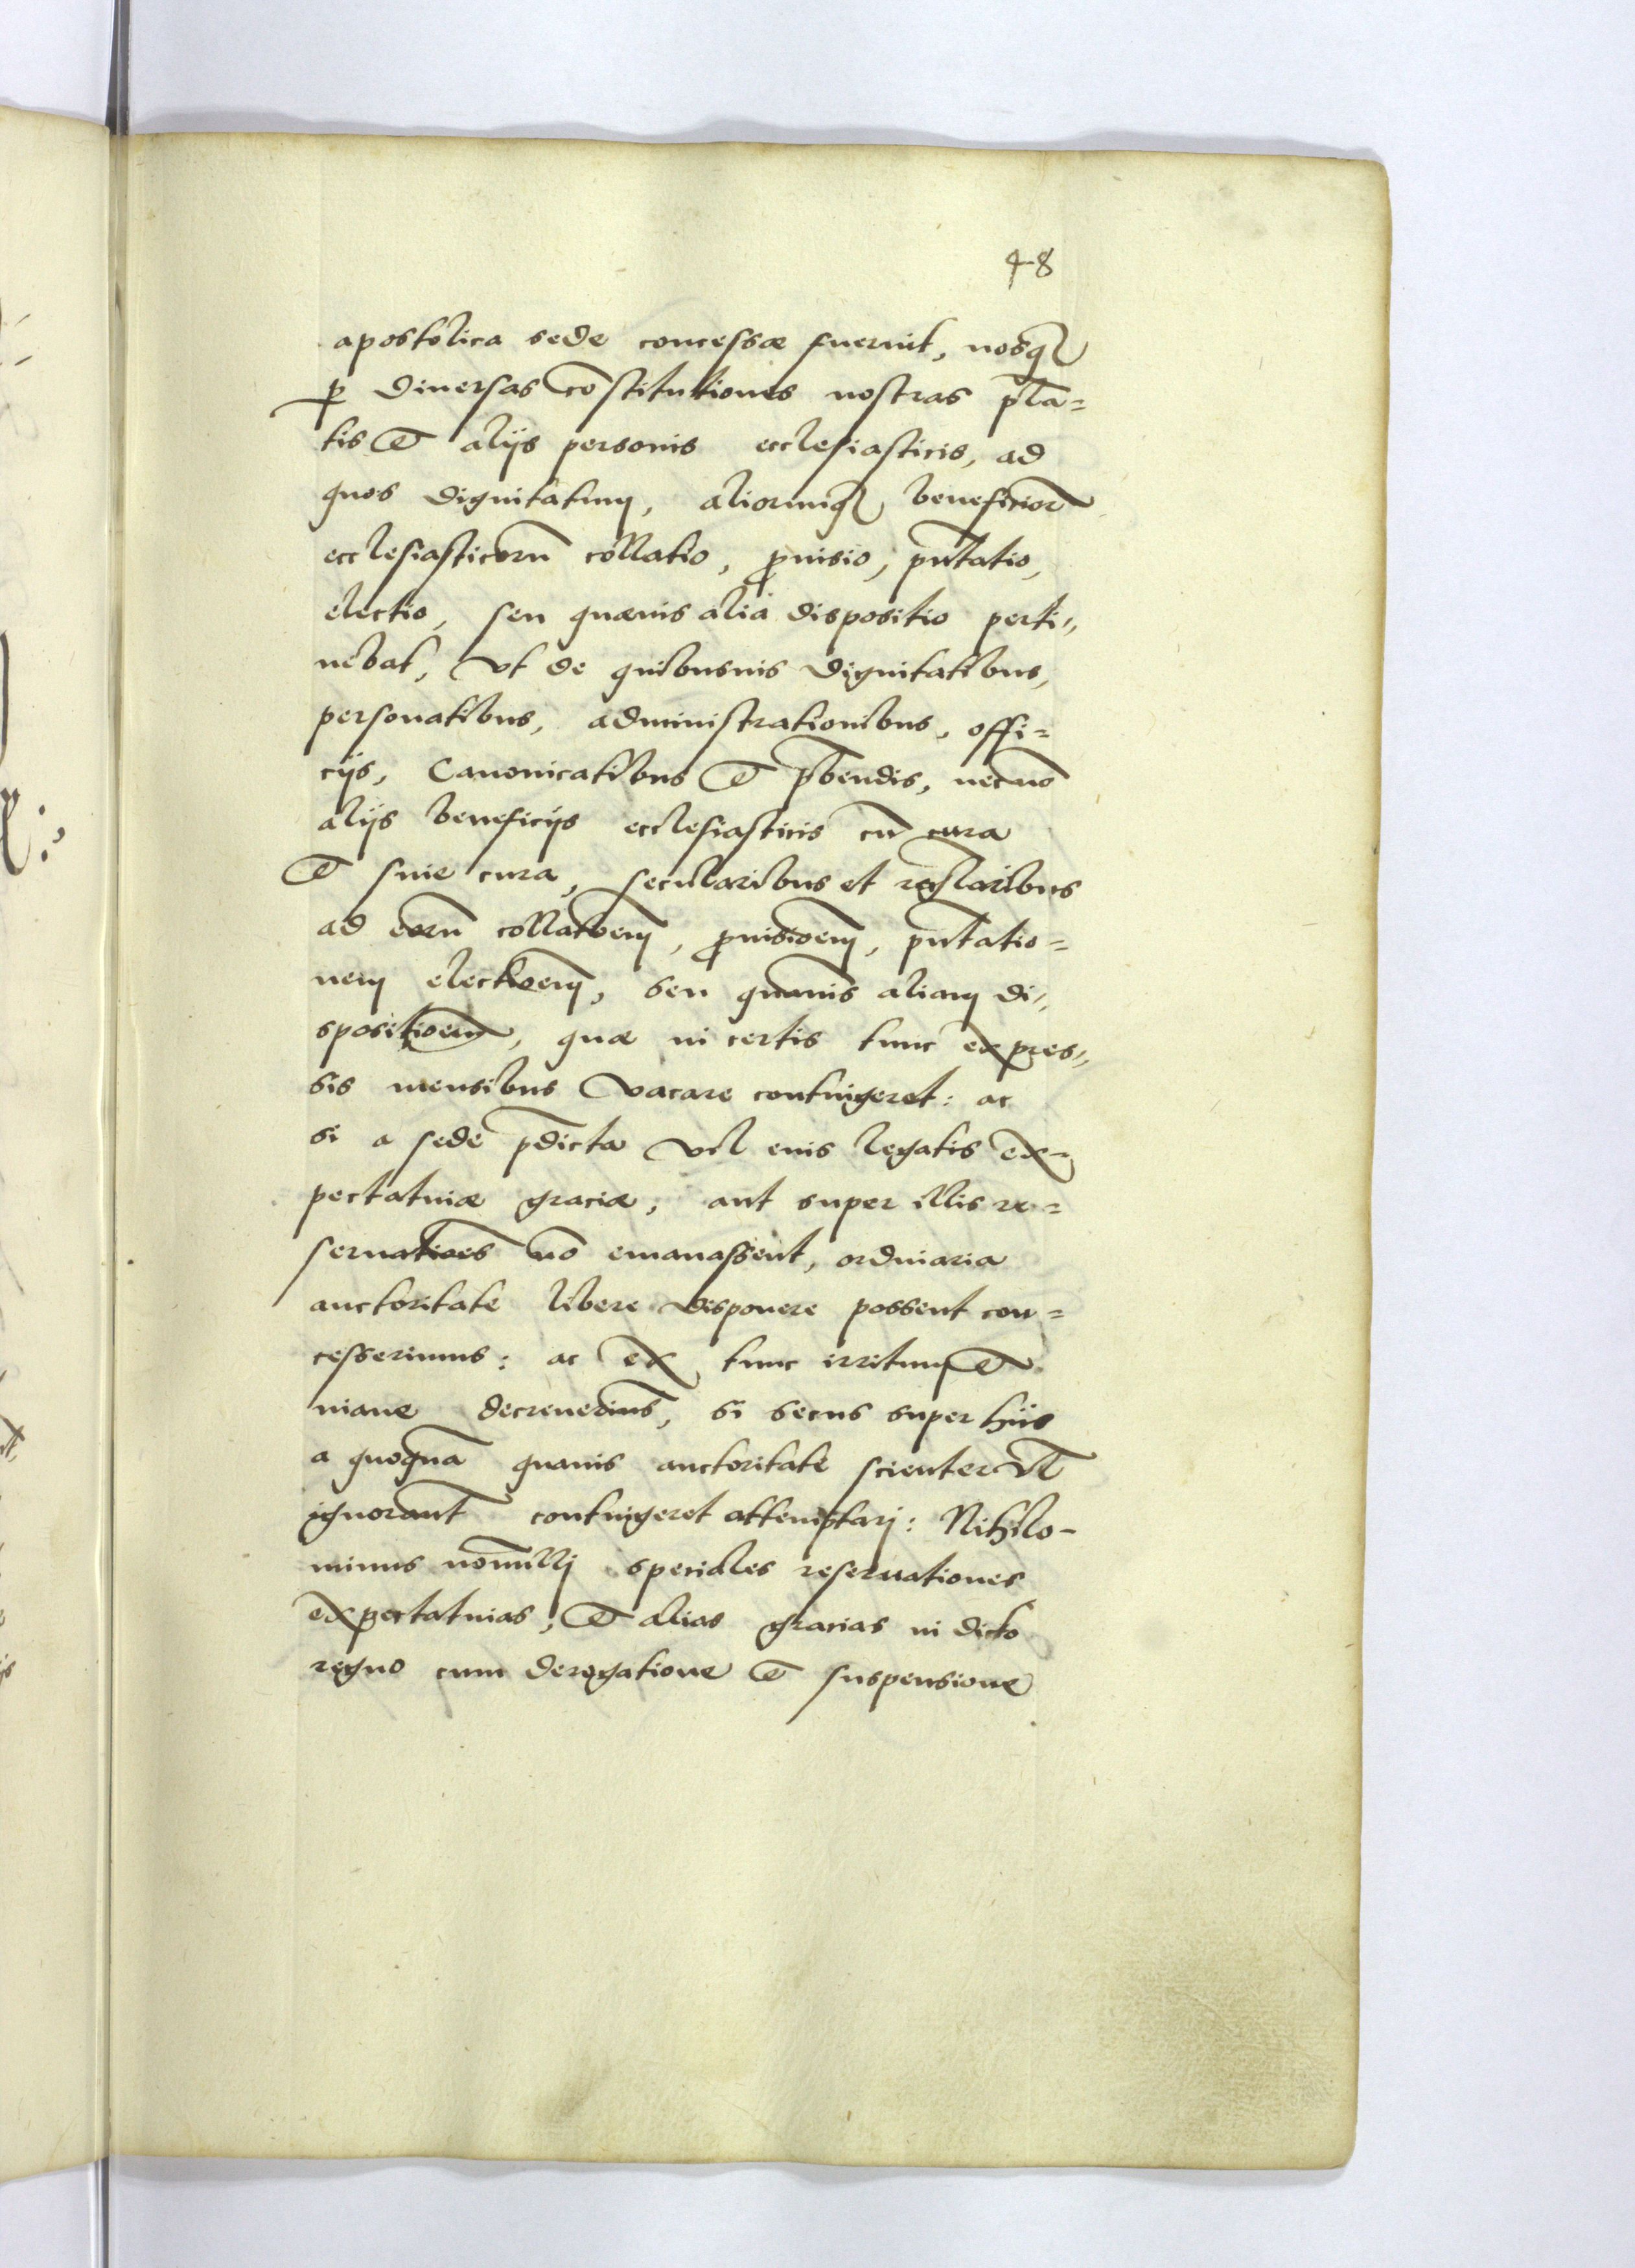 48
apostolica sede concessæ fuerint, nosq̃
p̱ diuersas cõstitutiones nostras p̃la=
tis et alijs personis ecclesiasticis, ad
quos dignitatum, aliorumq̃ beneficiorũ
ecclesiasticorũ collatio, ꝓuisio, pñtatio,
electio, seu quæuis alia dispositio perti,,
nebat, vt de quibusuis dignitatibus,
personatibus, administrationibus, offi=
cijs, Canonicatibus et p̃bendis, necnõ
alijs beneficijs ecclesiasticis cũ cura
et sine cura, secularibus et reglaribus
ad eorũ collatõem, ꝓuisioem, pñtatio=
nem electõem, seu quamuis aliam di,,
spositioem, quæ in certis tunc expres,,
sis mensibus vacare contingeret: ac
si a sede p̃dicta vel eius legatis ex=
pectatiuæ graciæ, aut super illis re=
seruatioes nõ emanassent, ordinaria
auctoritate libere disponere possent con=
cesserimus: ac ex tunc irritum et
inane decreuerims̃, si secus super hijs
a quoquã quauis auctoritate scienter vĩ
ignorant̃ contingeret attemptarj: Nihilo-
minus nonnullj speciales reseruationes
expectatiuas, et alias gracias in dicto
regno cum derogatione et suspensione